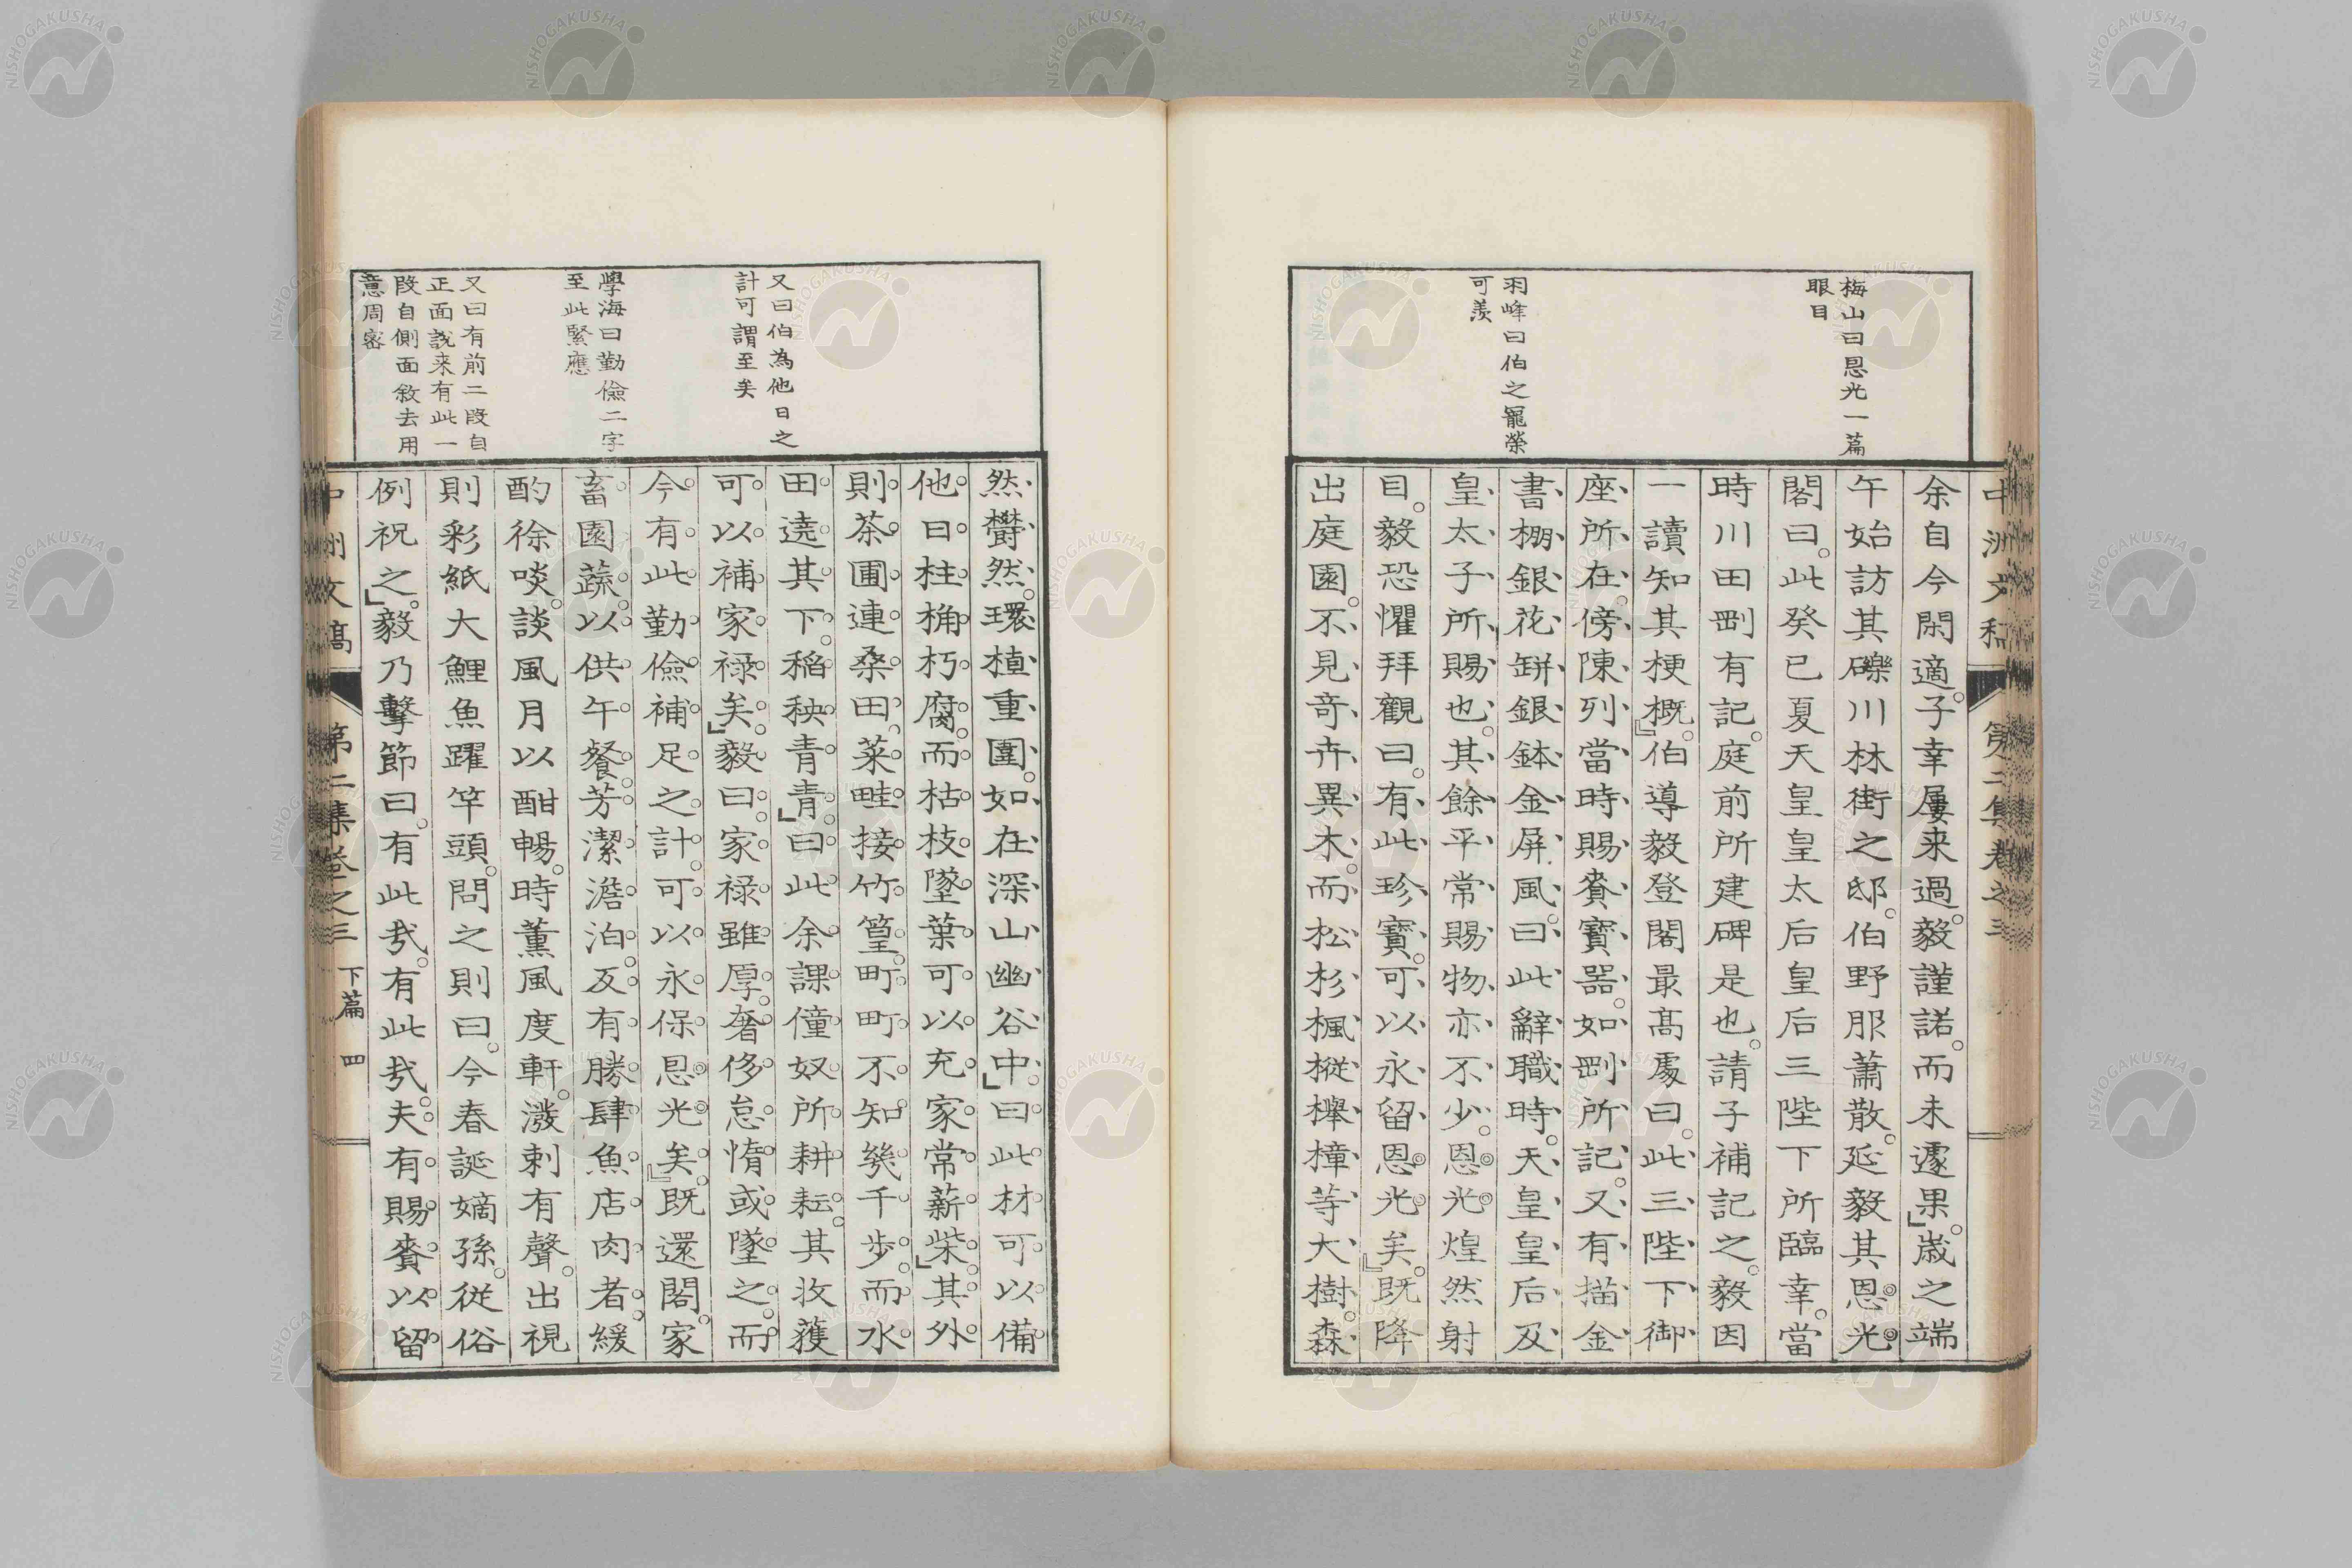 梅山曰恩光一篇
眼目
羽峰曰伯之寵榮
可羨
中洲文稿 第二集卷之三
余自今閑適子幸屢来過毅謹諾而未遽果歳之端
午始訪其礫川林街之邸伯野服蕭散延毅其恩光
閣曰此癸巳夏天皇皇太后皇后三陛下所臨幸當
時川田剛有記庭前所建碑是也請子補記之毅因
一讀知其梗概伯導毅登閣最髙處曰此三陛下御
座所在傍陳列當時賜賚寶器如剛所記又有描金
書棚銀花缾銀鉢金屏風曰此辭職時天皇皇后及
皇太子所賜也其餘平常賜物亦不少恩光煌然射
目毅恐懼拜觀曰有此珍寶可以永留恩光矣既降
出庭園不見竒卉異木而松杉楓樅欅橦等大樹森
又曰伯為他日之
計可謂至矣
學海曰勤儉二字
至此緊應
又曰有前二段自
正面說来有此一
段自側面敘去用
意周密
然欝然環植重圍如在深山幽谷中曰此材可以備
他日柱桷朽腐而枯枝墜葉可以充家常薪柴其外
則茶圃連桑田菜畦接竹篁町町不知幾千步而水
田遶其下稻秧青青曰此余課僮奴所耕耘其收穫
可以補家祿矣毅曰家祿雖厚奢侈怠惰或墜之而
今有此勤儉補足之計可以永保恩光矣既還閣家
畜園蔬以供午餐芳潔澹泊反有勝肆魚店肉者緩
酌徐啖談風月以酣暢時薫風度軒潑剌有聲出視
則彩紙大鯉魚躍竿頭問之則曰今春誕嫡孫從俗
例祝之毅乃擊節曰有此㢤有此㢤夫有賜賚以留
中洲文稿 第二集卷之三 下篇 四